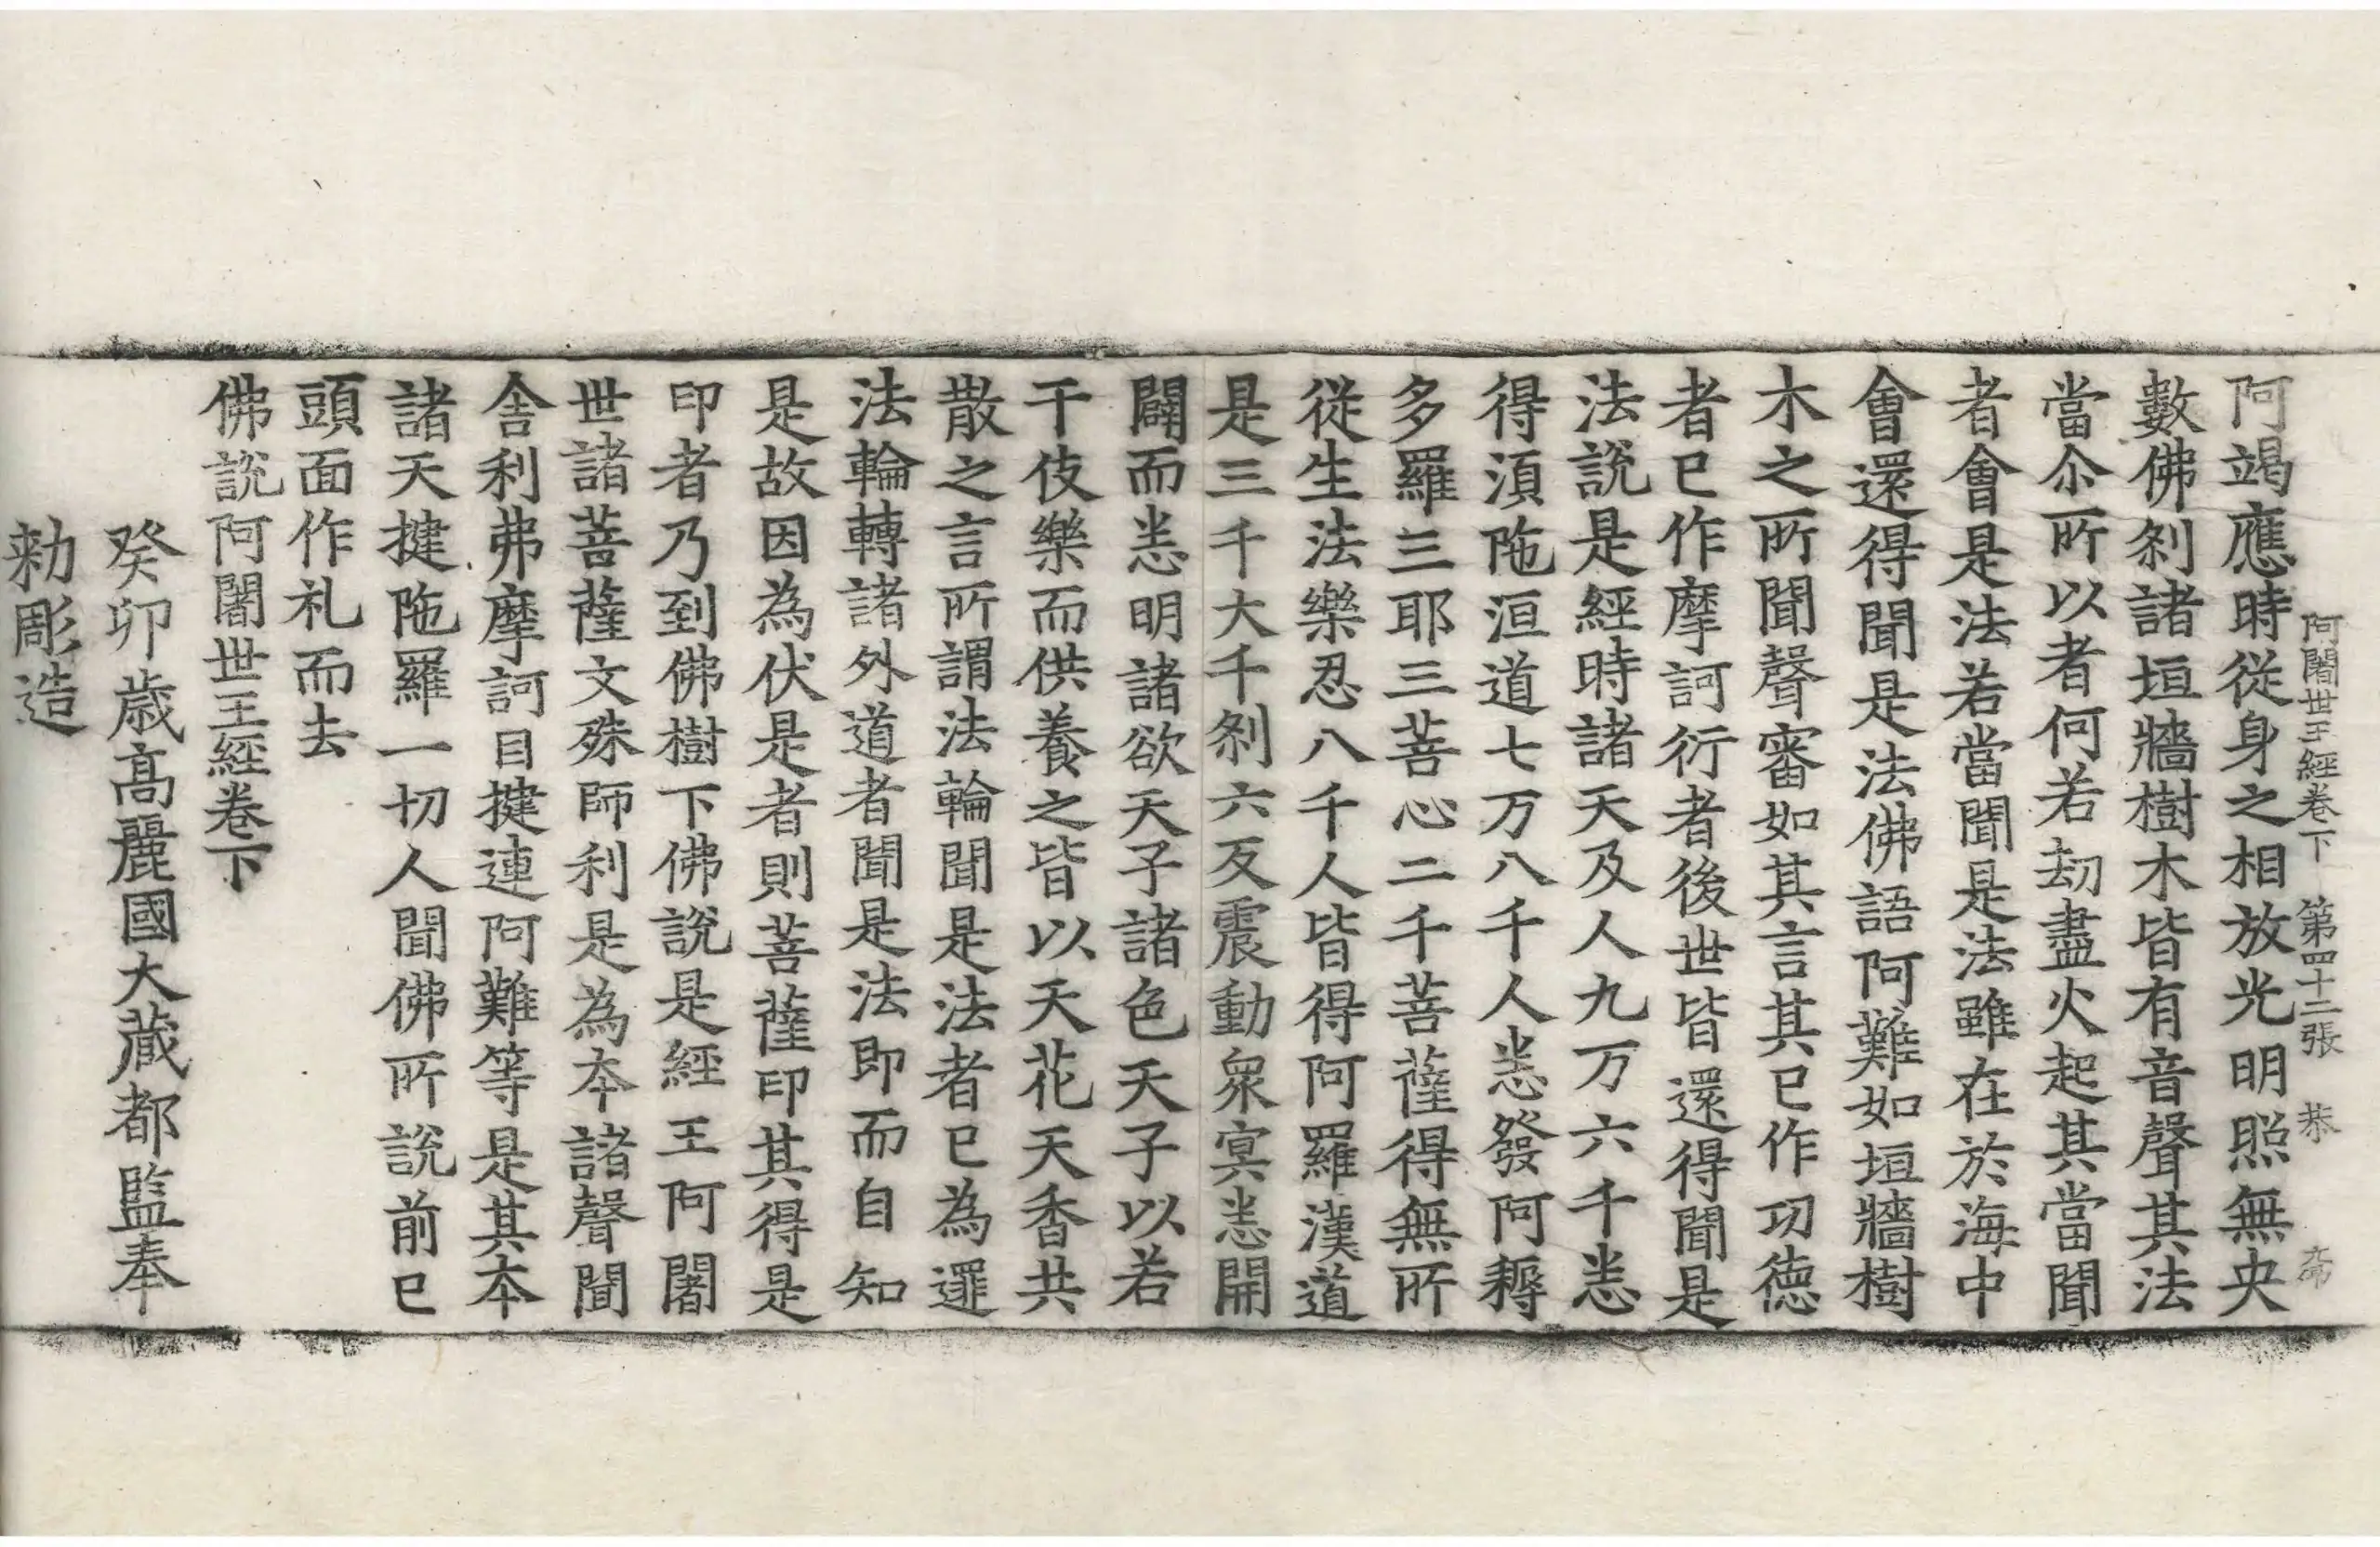 阿闍世王經卷下　第四十二張　恭
阿竭應時從身之相放光明照無央
數佛剎諸垣牆樹木皆有音聲其法
當尒所以者何若劫盡火起其當聞
者會是法若當聞是法雖在於海中
會還得聞是法佛語阿難如垣牆樹
木之所聞聲審如其言其已作功德
者已作摩訶衍者後世皆還得聞是
法說是經時諸天及人九万六千悉
得湏陁洹道七万八千人悉發阿耨
多羅三耶三菩心二千菩薩得無所
從生法樂忍八千人皆得阿羅漢道
是三千大千剎六反震動衆冥悉開
闢而悉明諸欲天子諸色天子以若
干伎樂而供養之皆以天花天香共
散之言所謂法輪聞是法者已為還
法輪轉諸外道者聞是法即而自知
是故因為伏是者則菩薩印其得是
印者乃到佛樹下佛說是經王阿闍
世諸菩薩文殊師利是為本諸聲聞
舍利弗摩訶目揵連阿難等是其本
諸天揵陁羅一切人聞佛所說前已
頭面作礼而去
佛說阿闍世王經卷下
癸卯歲高麗國大藏都監奉
勅彫造